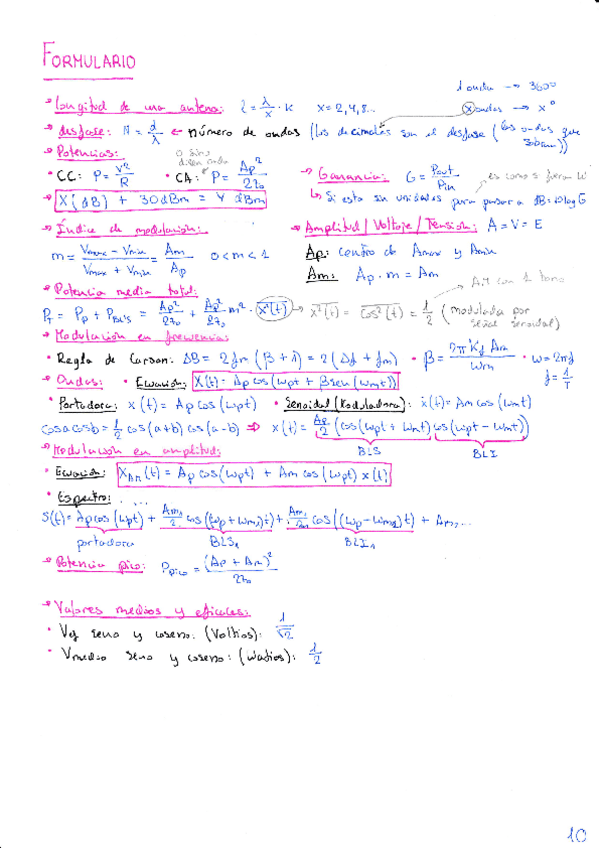 FORMULARIO
1 onda → 360º
→ Longitud de una antena: l = λ/x · K   x = 2, 4, 8...   ⓧ ondas → xº
→ desfase: N = d/λ ← número de ondas (los decimales son el desfase (las ondas que sobran))
→ Potencias:
• CC: P = V²/R   • CA: P = Ap²/2z₀
→ Ganancia: G = Pout/Pin   es como si fuera
→ X(dB) + 30dBm = Y dBm
↳ Si esta sin unidades para pasar a dB = 10 log G
→ Índice de modulación:
→ Amplitud / Voltaje / Tensión: A = V = E
m = (Vmax - Vmin)/(Vmax + Vmin) = Am/Ap   0 < m < 1
Ap: centro de Amax y Amin
Am: Ap · m = Am
→ Potencia media total:
AM con 1 tono
PT = Pp + PBL's = Ap²/2z₀ + Ap²/2z₀ m² · x²(t) → x²(t) = cos²(t) = 1/2 (modulada por señal senoidal)
→ Modulación en frecuencia:
• Regla de Carson: ΔB = 2fm (β + 1) = 2 (Δf + fm)   • β = 2π Kf Am / Wm   • w = 2πf   f = 1/T
→ Ondas: • Ecuación: X(t) = Ap cos (wpt + β sen (wmt))
• Portadora: x(t) = Ap cos (wpt)   • Senoidal (Moduladora): x(t) = Am cos (wmt)
cos a cos b = 1/2 cos (a+b) cos (a-b) ⇒ x(t) = Ap/2 (cos (wpt + wmt) cos (wpt - wmt))
BLS   BLI
→ Modulación en amplitud:
• Ecuación: XAM(t) = Ap cos (wpt) + Am cos (wpt) x(t)
• Espectro: ...
S(t) = Ap cos (wpt) + Am₁/2 cos ((wp + wm₁)t) + Am₁/2 cos ((wp - wm₁)t) + Am₂...
portadora   BLS₁   BLI₁
→ Potencia pico: Ppico = (Ap + Am)²/2z₀
→ Valores medios y eficaces:
• Vef seno y coseno: (Voltios): 1/√2
• Vmedio seno y coseno: (watios): 1/2
10